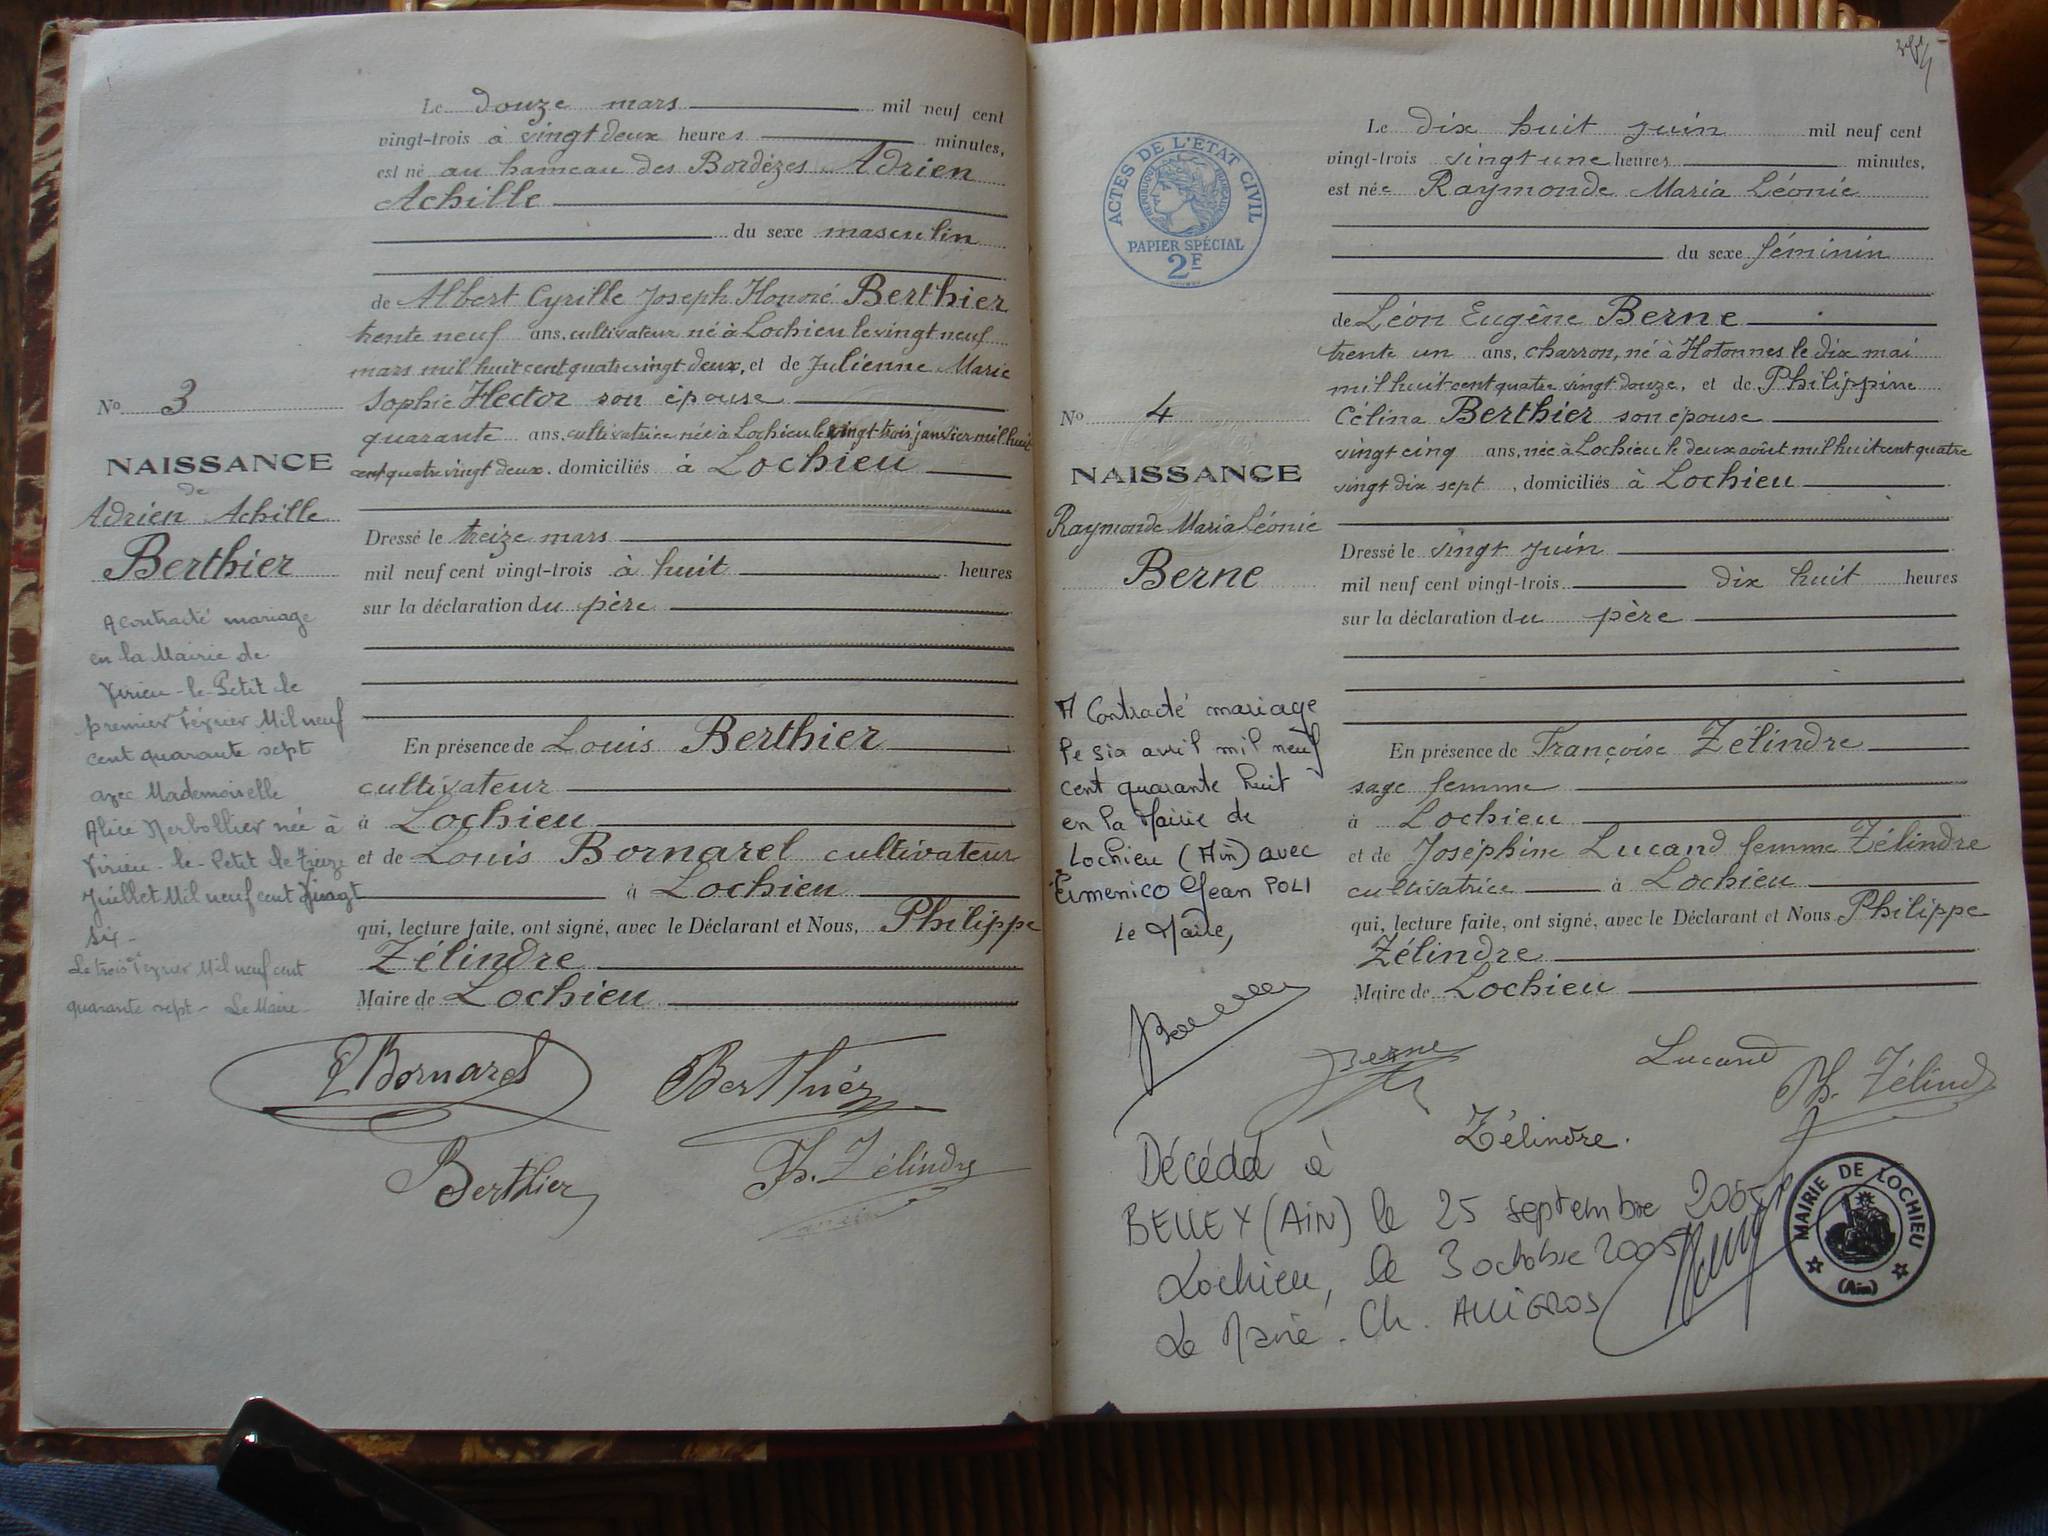 Le douze mars mil neuf cent
vingt-trois à vingt deux heures minutes,
est né au hameau des Bordèzes Adrien
Achille
du sexe masculin
de Albert Cyrille Joseph Honoré Berthier
trente neuf ans, cultivateur né à Lochieu le vingt neuf
mars mil huit cent quatre vingt deux, et de Julienne Marie
Sophie Hector son épouse
quarante ans, cultivatrice née à Lochieu le vingt trois janvier mil huit
cent quatre vingt deux, domiciliés à Lochieu
Dressé le treize mars
mil neuf cent vingt-trois à huit heures
sur la déclaration du père
En présence de Louis Berthier
cultivateur
à Lochieu
et de Louis Bornarel cultivateur
à Lochieu
qui, lecture faite, ont signé, avec le Déclarant et Nous, Philippe
Zélindre
Maire de Lochieu
No 3
NAISSANCE
de
Adrien Achille
Berthier
A contracté mariage
en la Mairie de
Virieu-le-Petit le
premier Février Mil neuf
cent quarante sept
avec Mademoiselle
Alice née à
Virieu-le-Petit le Treize
Juillet Mil neuf cent Vingt
six-
Le trois Février Mil neuf cent
quarante sept - Le Maire-
L Bornarel Berthier
Berthier Ph. Zélindre
ACTES DE L'ÉTAT CIVIL
RÉPUBLIQUE FRANÇAISE
PAPIER SPÉCIAL
2F
Le dix huit juin mil neuf cent
vingt-trois vingt une heures minutes,
est née Raymonde Maria Léonie
du sexe féminin
de Léon Eugène Berne
trente un ans, charron, né à Hotonnes le dix mai
mil huit cent quatre vingt douze, et de Philippine
Célina Berthier son épouse
vingt cinq ans, née à Lochieu le deux août mil huit cent quatre
vingt dix sept, domiciliés à Lochieu
Dressé le vingt juin
mil neuf cent vingt-trois dix huit heures
sur la déclaration du père
En présence de Françoise Zélindre
sage femme
à Lochieu
et de Joséphine Lucand femme Zélindre
cultivatrice à Lochieu
qui, lecture faite, ont signé, avec le Déclarant et Nous, Philippe
Zélindre
Maire de Lochieu
No 4
NAISSANCE
Raymonde Maria Léonie
Berne
A Contracté mariage
le six avril mil neuf
cent quarante huit
en la Mairie de
Lochieu (Ain) avec
Jean POLI
Le Maire,
Berne Lucand Ph. Zélindre
Zélindre.
Décédée à
BELLEY (AIN) le 25 septembre 2005
Lochieu, le 3 octobre 2005
Le Maire. Ch. ALLIGROS
MAIRIE DE LOCHIEU
(Ain)